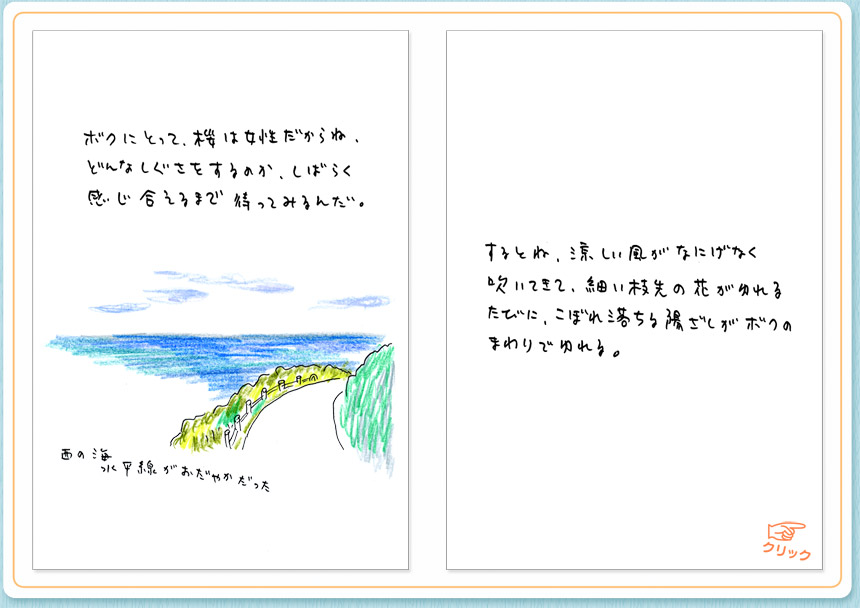 ボクにとって、桜は女性だからね、
どんなしぐさをするのか、しばらく
感じ合えるまで待ってみるんだ。
西の海
水平線がおだやかだった
するとね、涼しい風がなにげなく
吹いてきて、細い枝先の花がゆれる
たびに、こぼれ落ちる陽ざしがボクの
まわりでゆれる。
クリック